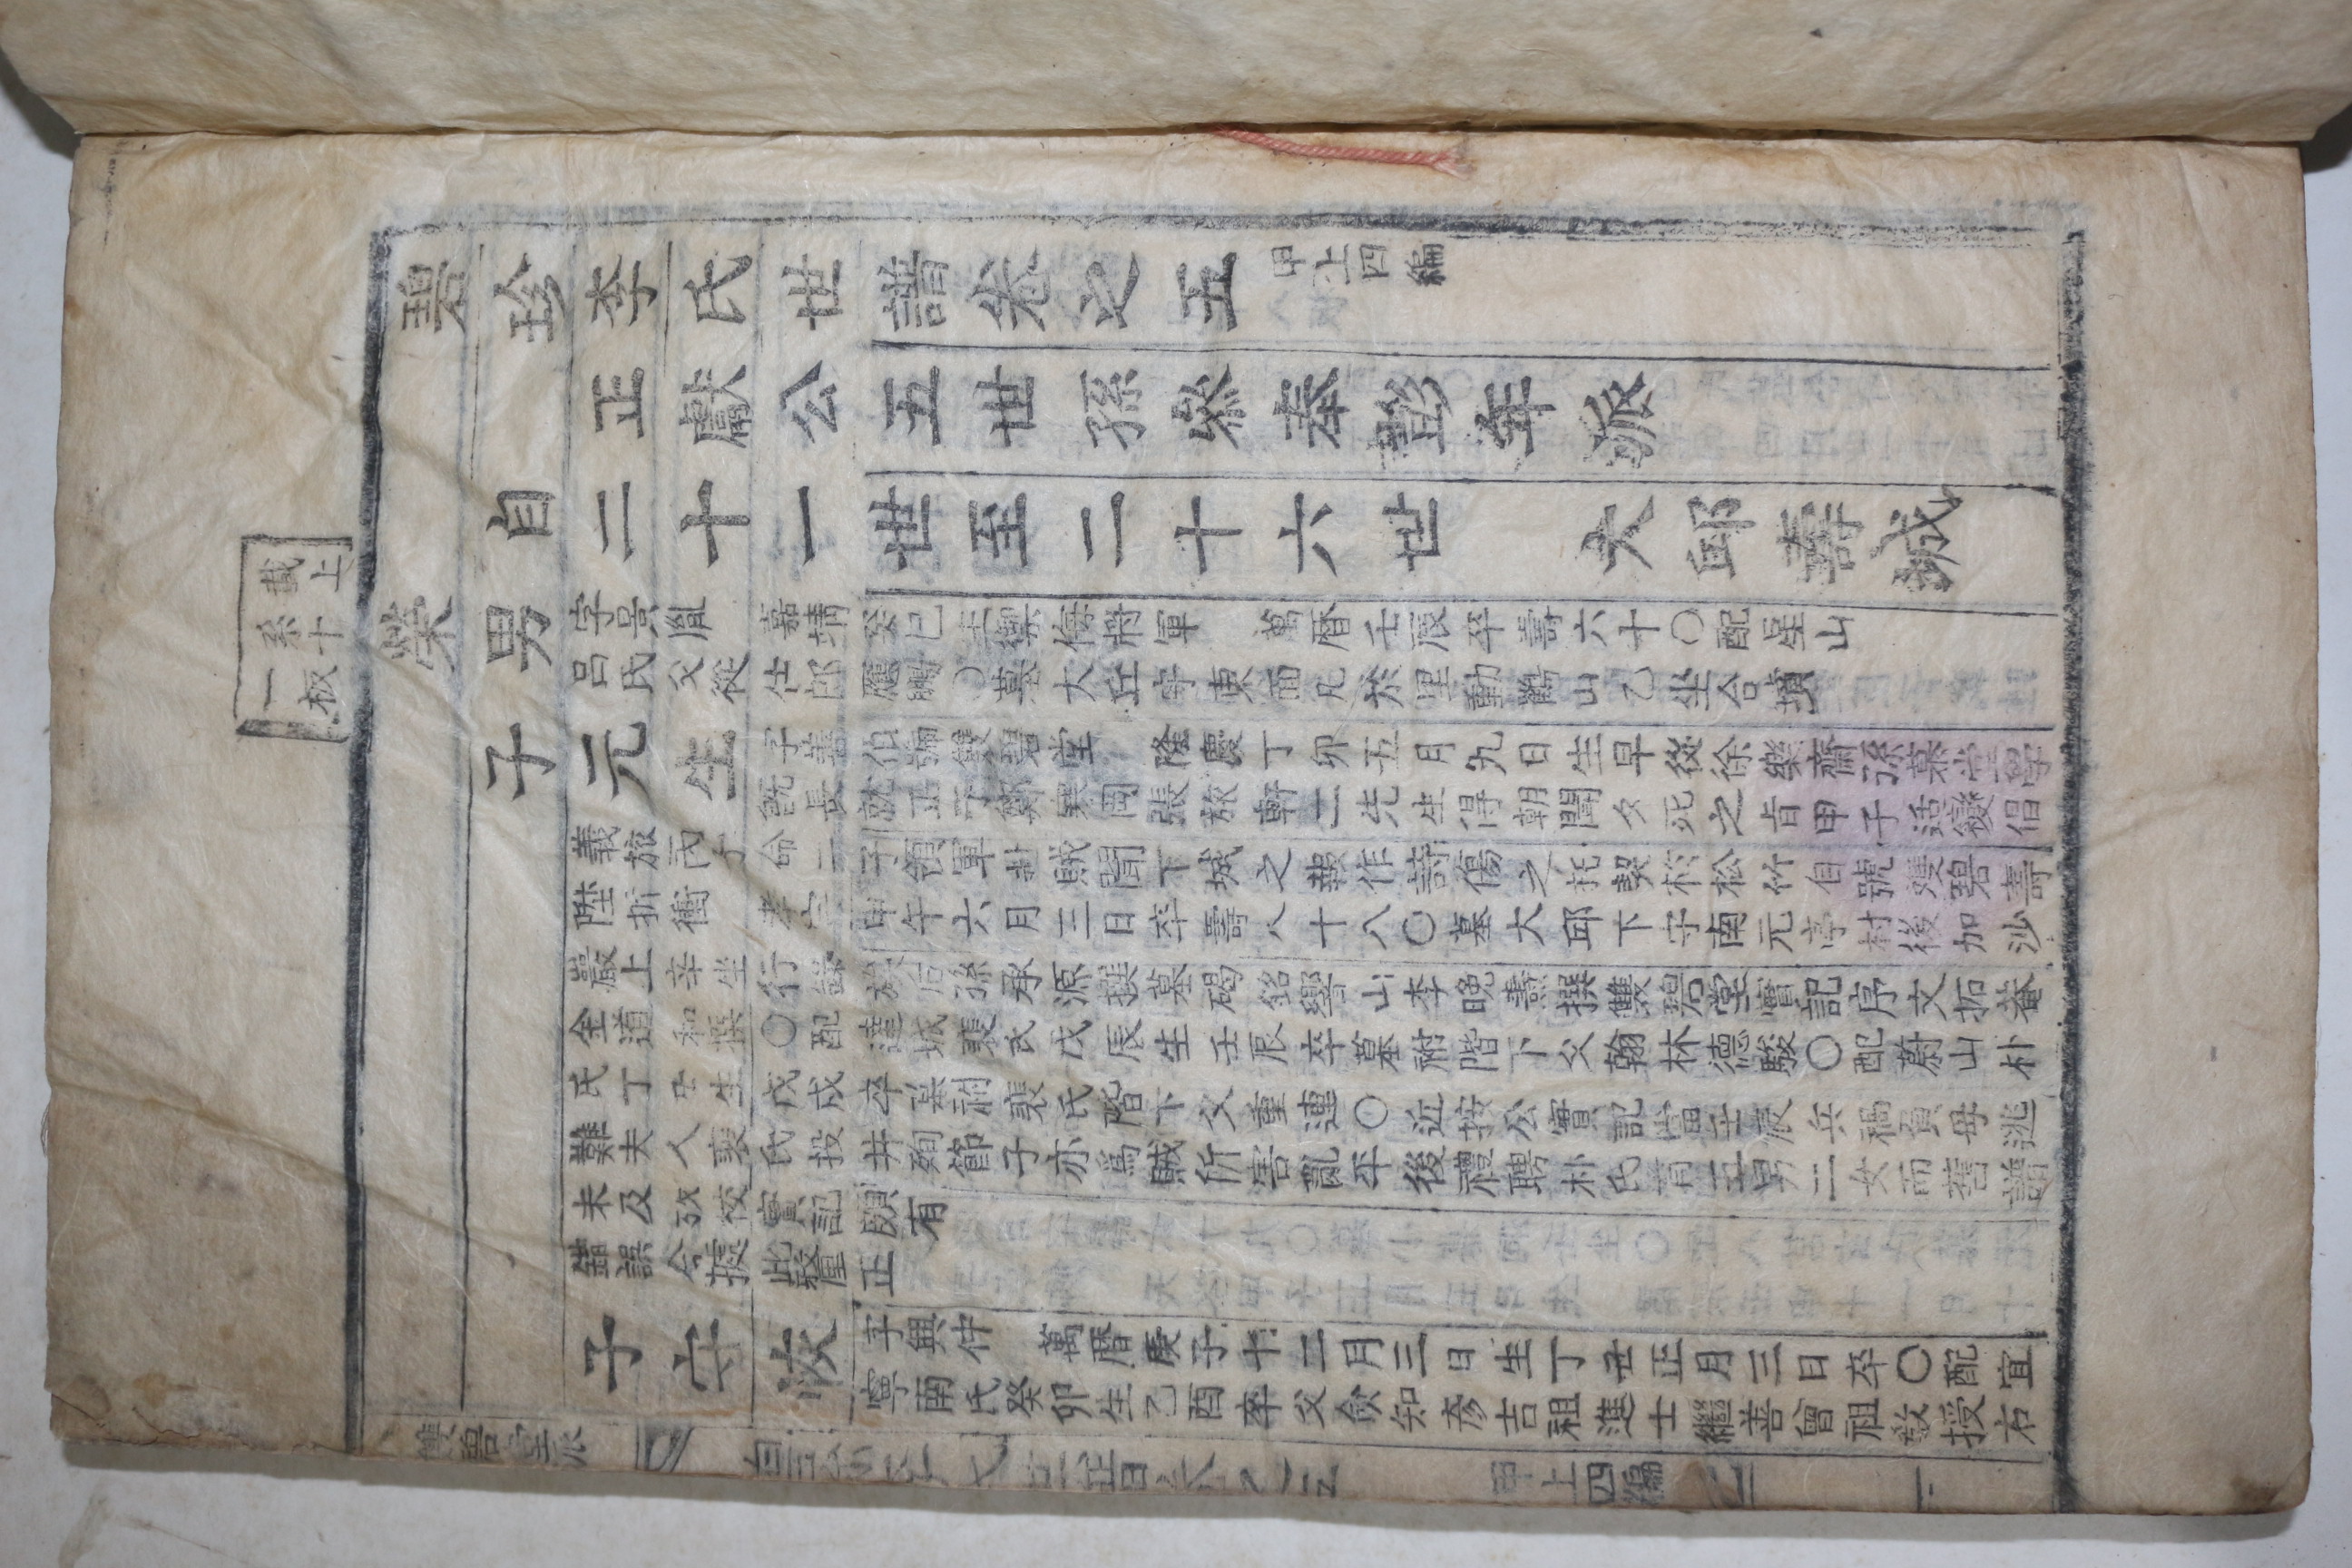 碧珍李氏世譜卷之五 甲上四編
正獻公五世孫參奉彭年派
自二十一世至二十六世 大邱壽城
載上
系十
一板
榮男
字景胤 嘉靖癸巳生禦侮將軍 萬曆壬辰卒壽六十○配星山
呂氏父從仕郎應鵬○墓大丘守東面凡於里動鶴山乙坐合墳
子元生
字善伯號雙碧堂 隆慶丁卯五月九日生早從徐樂齋孫慕堂學
旣長就正于鄭寒岡張旅軒二先生得朝聞夕死之旨甲子适變倡
義旅丙子命二子領軍赴賊聞下城之報作詩傷之托契於松竹自號雙碧壽
陞折衝 孝宗甲午六月三日卒壽八十八○墓大邱下守南元亭村後加沙
巖上辛坐行錄族后孫承源撰墓碣銘響山李晩燾撰雙碧堂實記序文拓菴
金道和撰○配達城裴氏戊辰生壬辰卒墓祔階下父翰林德駿○配蔚山朴
氏丁 生戊戌卒墓祔裴氏階下父重連○近按公實記當壬辰兵禍負母逃
難夫人裵氏投井殉節子亦爲賊所害亂平後禮聘朴氏育五男二女而舊譜
未及攷校實記頗有
錯誤今據此釐正
子守恢
字興仲 萬曆庚子十二月三日生丁丑正月三日卒○配宜
寧南氏癸卯生乙酉卒父僉知彦吉祖進士繼善曾祖敎授右
雙碧堂派 碧珍李氏世譜卷之五 甲上四編 一